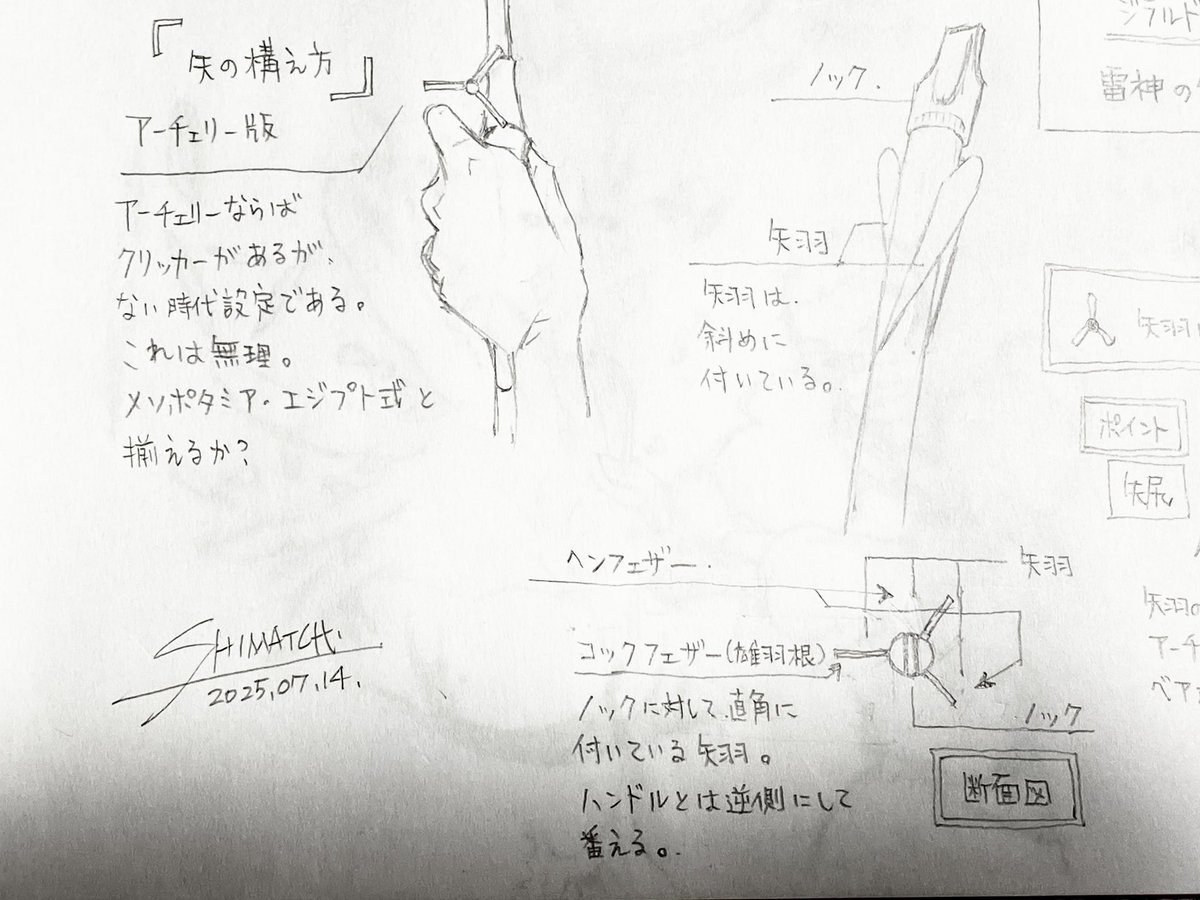 『矢の構え方』
アーチェリー版
アーチェリーならば
クリッカーがあるが、
ない時代設定である。
これは無理。
メソポタミア・エジプト式と
揃えるか?
SHIMATCH.
2025,07,14.
ノック.
矢羽
矢羽は.
斜めに
付いている。.
ヘンフェザー.
矢羽
コックフェザー(雄羽根)
ノックに対して直角に
付いている矢羽。
ハンドルとは逆側にして
番える。.
ノック
断面図
ジラルド
雷神の
矢羽
ポイント
矢尻
矢羽の
アーチ
ベア